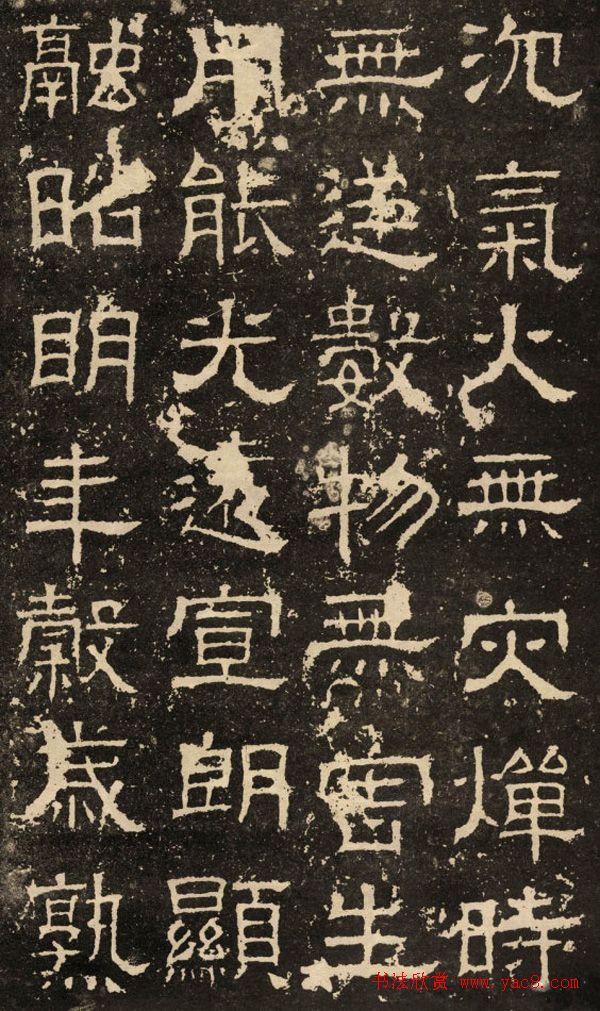 沉氣火無灾燀時
無逆數物無害生
用能光遠宣朗顯
融昭明年穀歲孰
书法欣赏 www.yac8.com